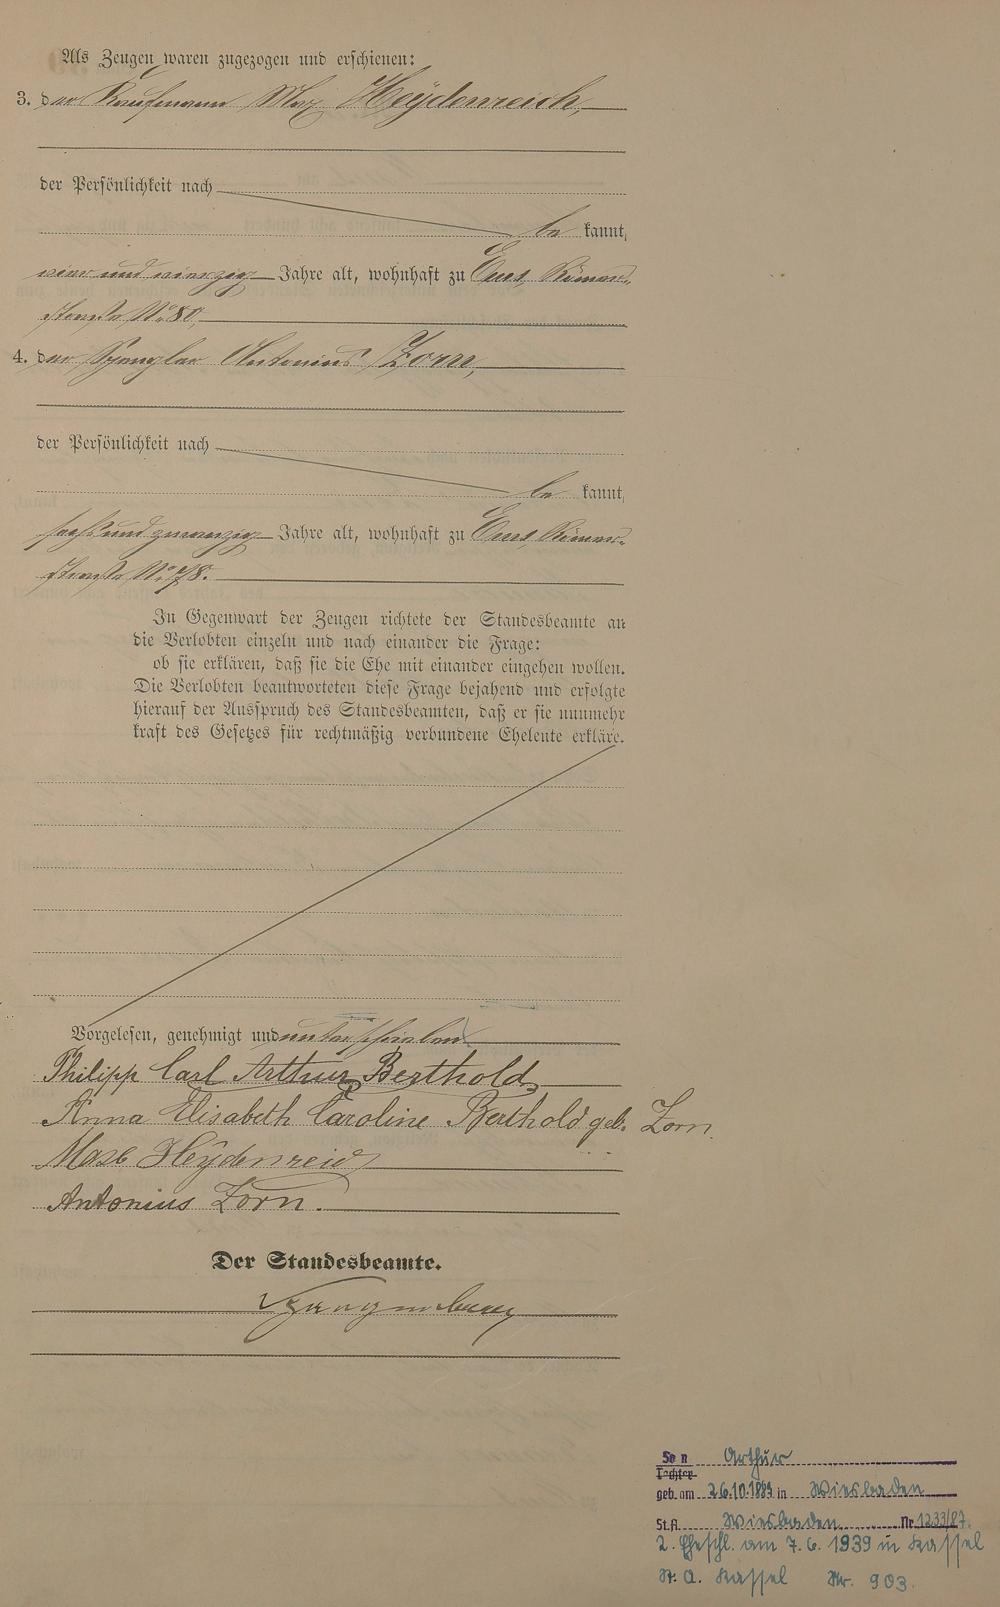 Als Zeugen waren zugezogen und erschienen:
3. der Kaufmann Max Heydenreich,
der Persönlichkeit nach
be kannt,
vier und vierzig Jahre alt, wohnhaft zu Ems, Römer-
straße No 80,
4. der Spengler Antonius Zorn,
der Persönlichkeit nach
be kannt,
sechs und zwanzig Jahre alt, wohnhaft zu Ems, Römer-
straße No 78.
In Gegenwart der Zeugen richtete der Standesbeamte an
die Verlobten einzeln und nach einander die Frage:
ob sie erklären, daß sie die Ehe mit einander eingehen wollen.
Die Verlobten beantworteten diese Frage bejahend und erfolgte
hierauf der Ausspruch des Standesbeamten, daß er sie nunmehr
kraft des Gesetzes für rechtmäßig verbundene Eheleute erkläre.
Vorgelesen, genehmigt und unterschrieben
Philipp Carl Arthur Berthold
Anna Elisabeth Caroline Berthold geb. Zorn.
Max Heÿdenreich
Antonius Zorn.
Der Standesbeamte.
Sohn Arthur
Tochter
geb. am 26.10.1887 in Wiesbaden
St.A. Wiesbaden Nr. 1233/87.
2. Eheschl. am 7.6.1939 in Kassel
St. A. Kassel Nr. 903.